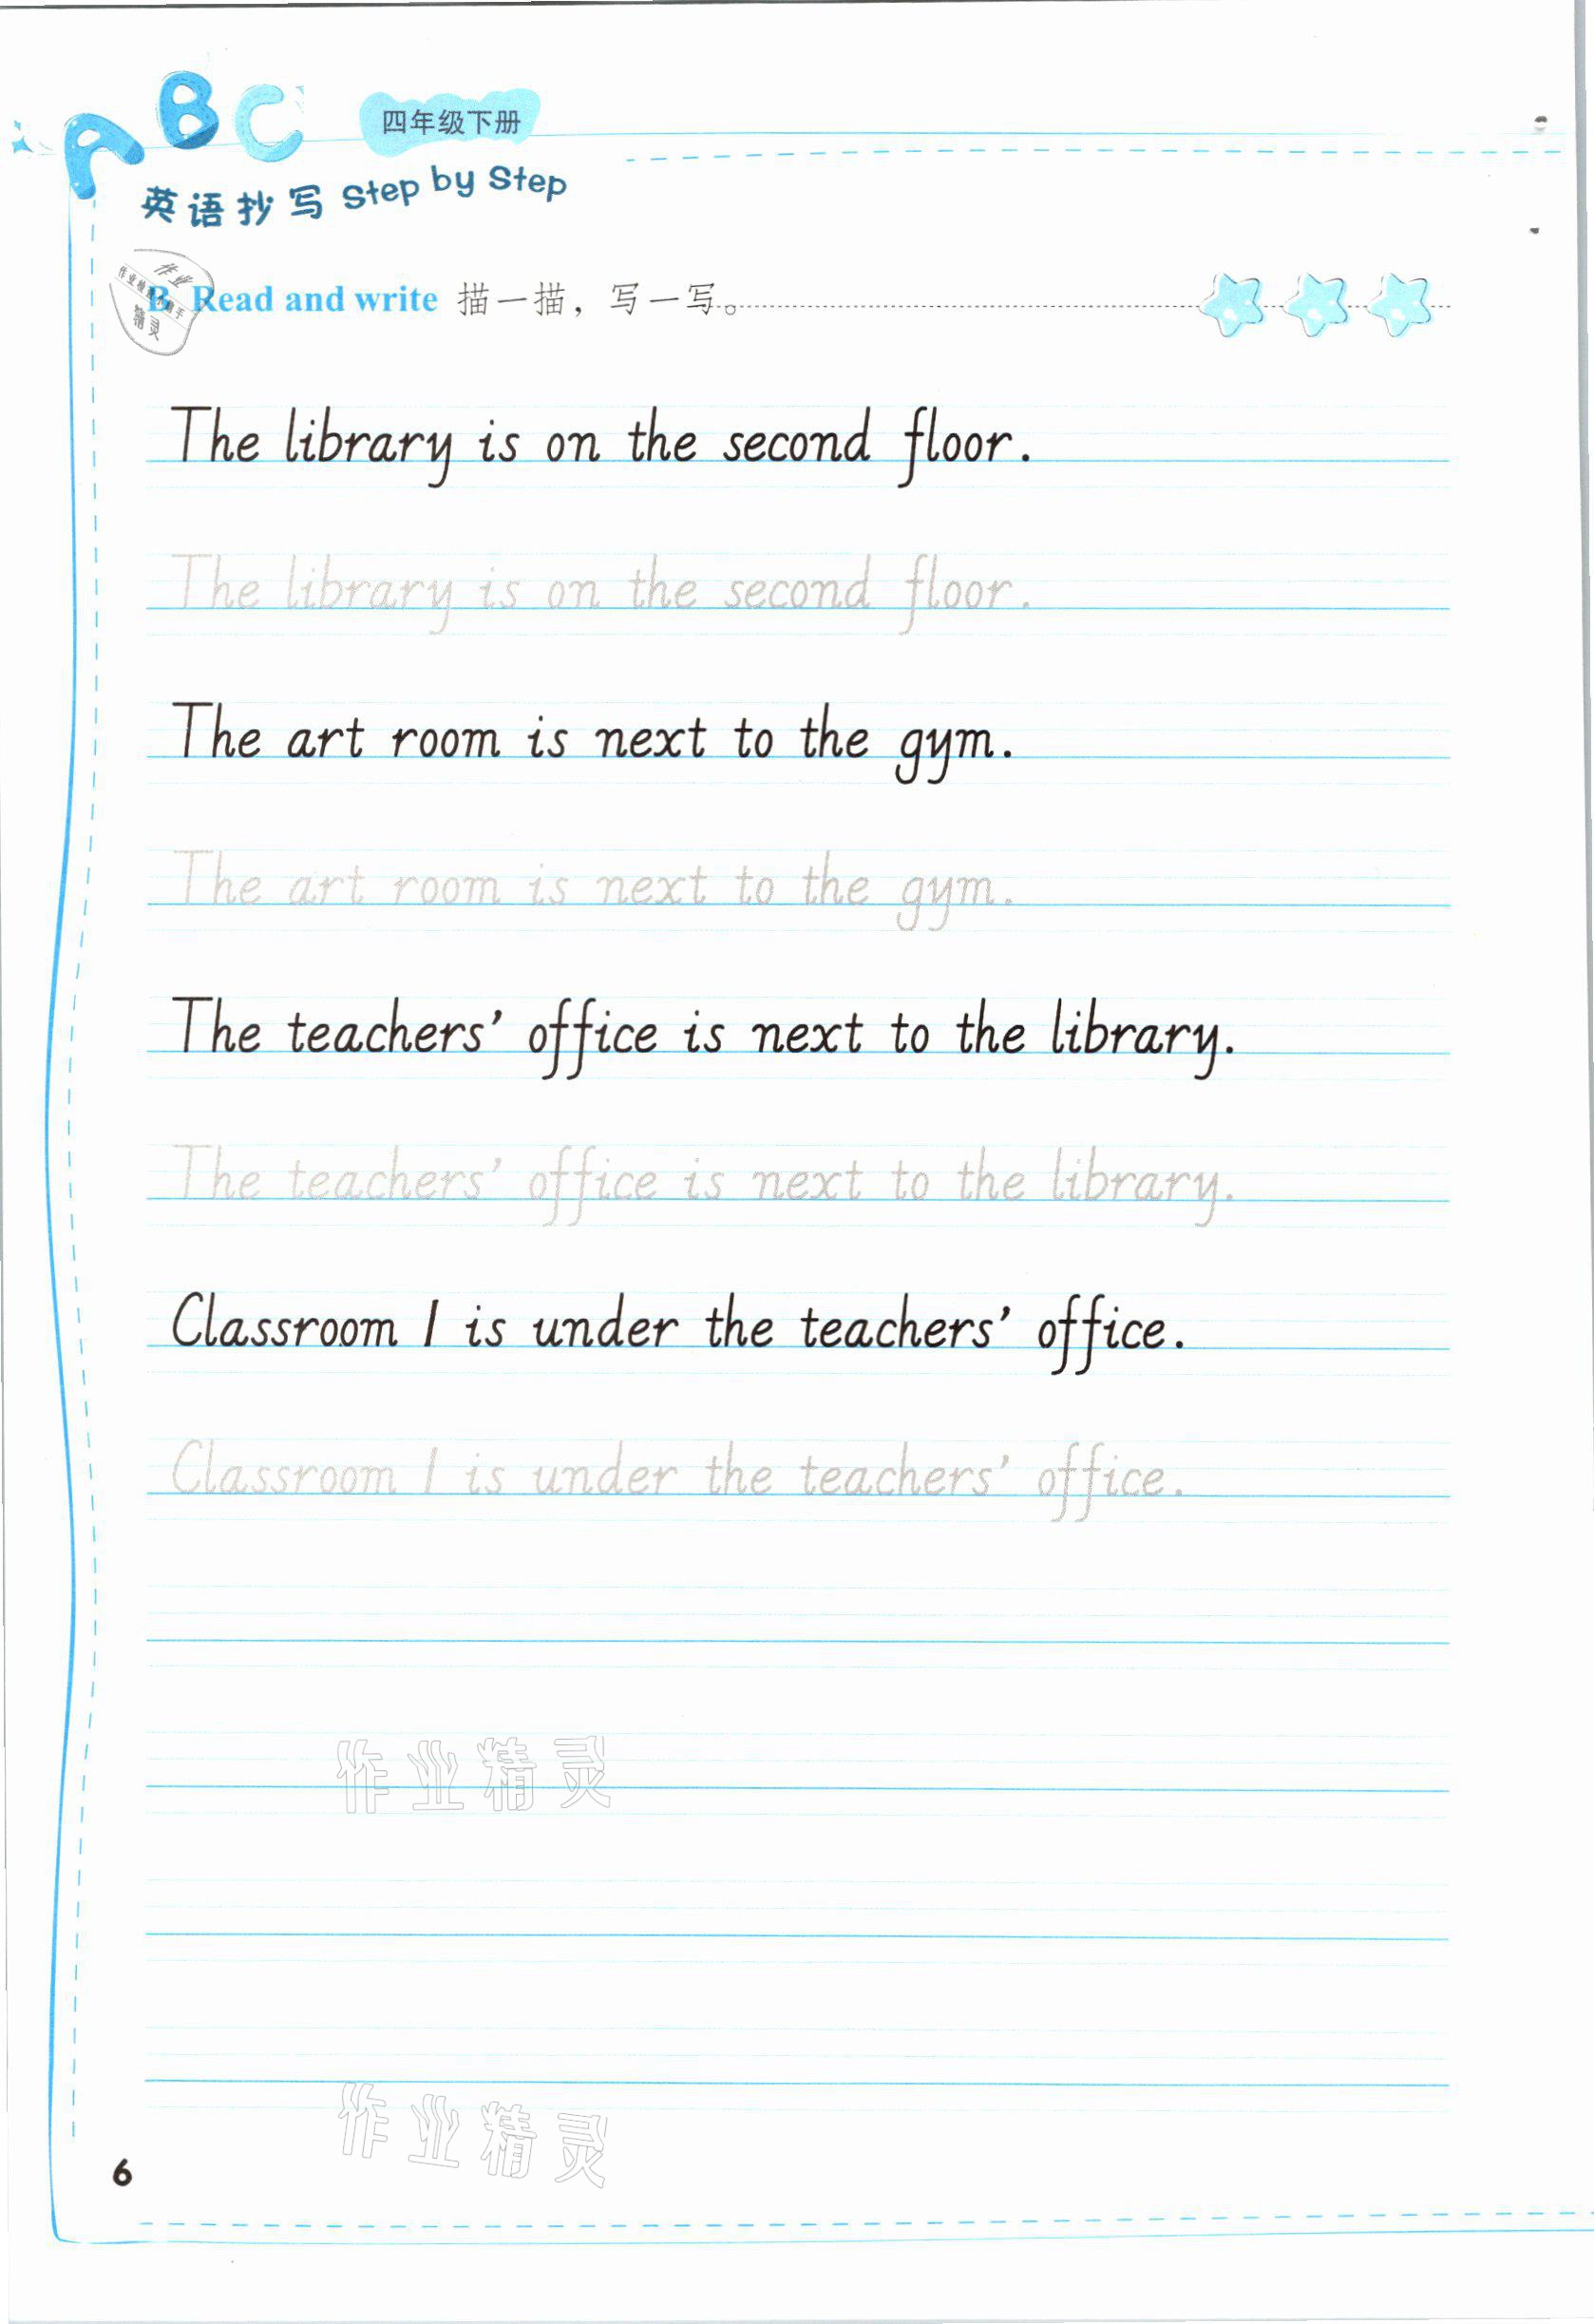 ABC
四年级下册
英语抄写 Step by Step
B Read and write 描一描，写一写。
The library is on the second floor.
The library is on the second floor.
The art room is next to the gym.
The art room is next to the gym.
The teachers' office is next to the library.
The teachers' office is next to the library.
Classroom 1 is under the teachers' office.
Classroom 1 is under the teachers' office.
作业精灵
作业精灵
6